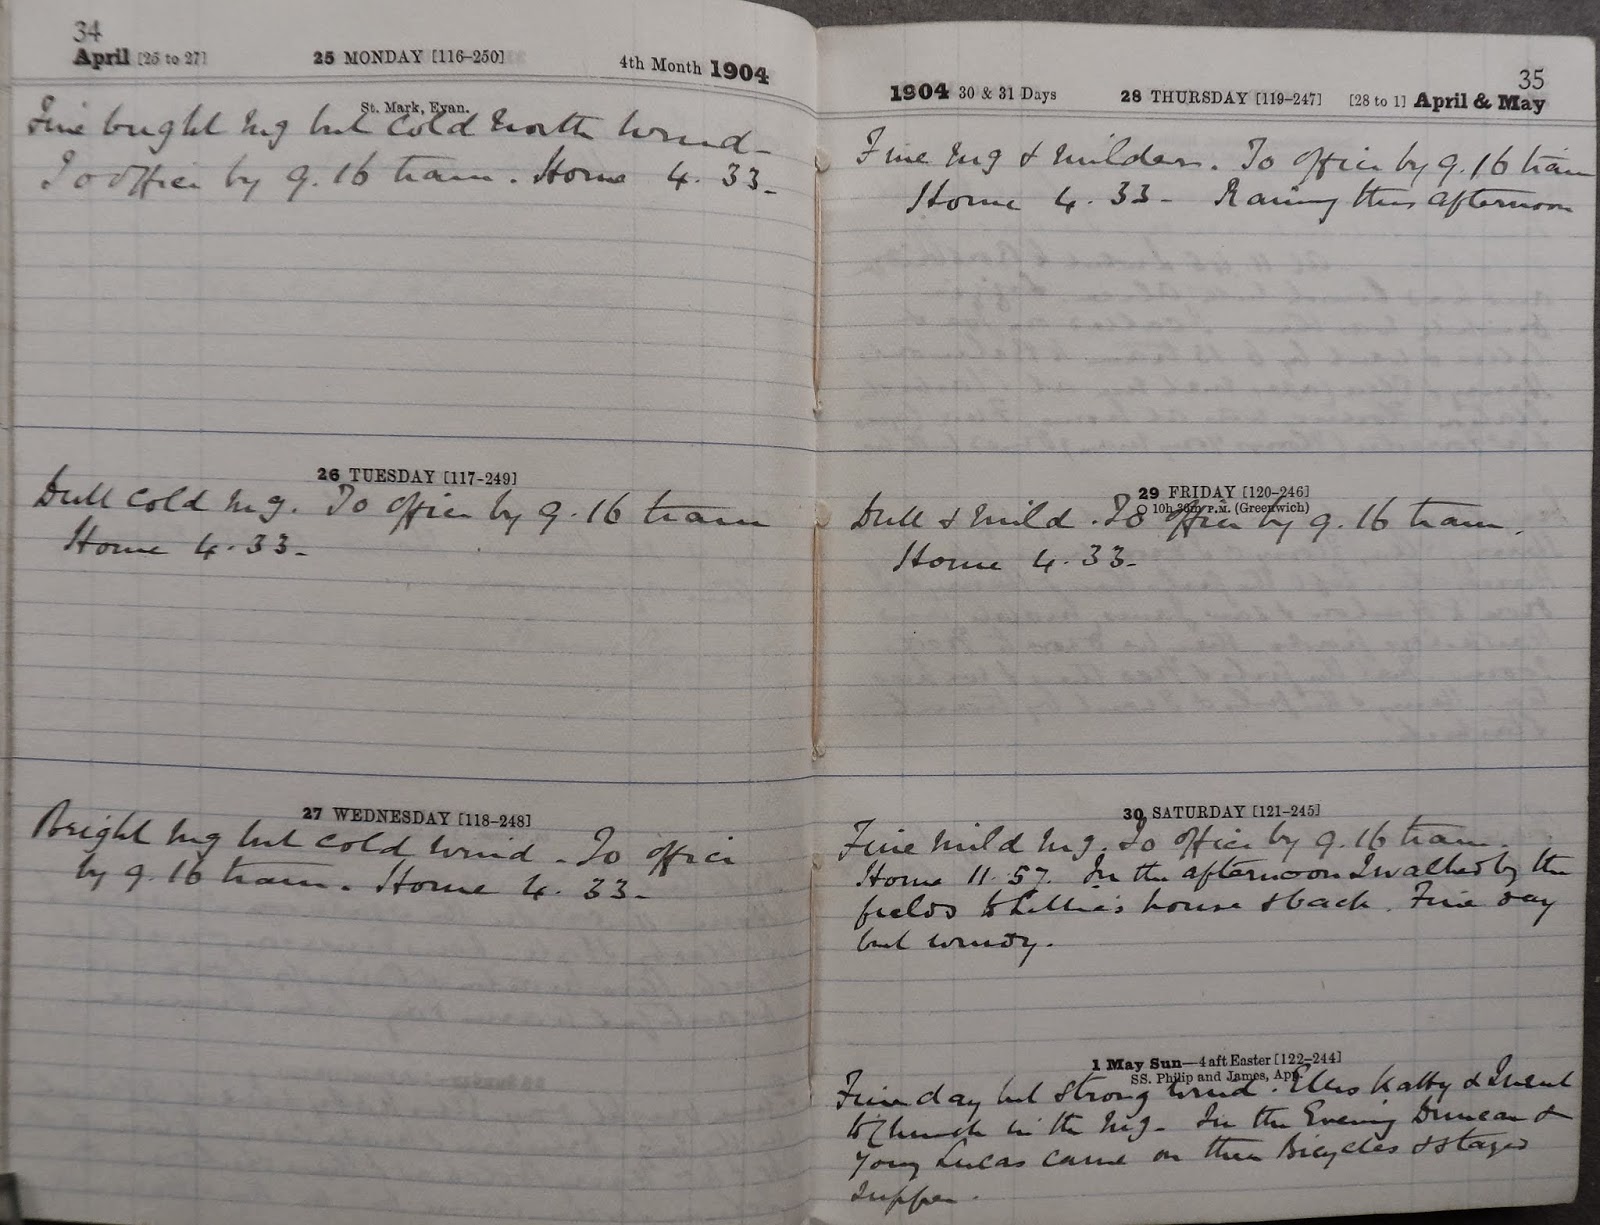 34
April [25 to 27] 25 MONDAY [116-250] 4th Month 1904
St. Mark, Evan.
Fine bright mg but cold North wind -
To office by 9.16 tram. Home 4.33 -
26 TUESDAY [117-249]
Dull cold mg. To office by 9.16 tram
Home 4.33 -
27 WEDNESDAY [118-248]
Bright mg but cold wind - To office
by 9.16 tram. Home 4.33 -
35
1904 30 & 31 Days 28 THURSDAY [119-247] [28 to 1] April & May
Fine mg & milder. To office by 9.16 train
Home 4.33 - Raining this afternoon
29 FRIDAY [120-246]
○ 10h 36m P.M. (Greenwich)
Dull & mild. To office by 9.16 tram.
Home 4.33 -
30 SATURDAY [121-245]
Fine mild mg. To office by 9.16 tram.
Home 11.57. In the afternoon I walked by the
fields to Lillie's house & back. Fine day
but windy.
1 May Sun—4 aft Easter [122-244]
SS. Philip and James, App.
Fine day but strong wind. Katty & I went
to Church in the mg - In the Evening Duncan &
Tony Lucas came on their Bicycles & stayed
supper.